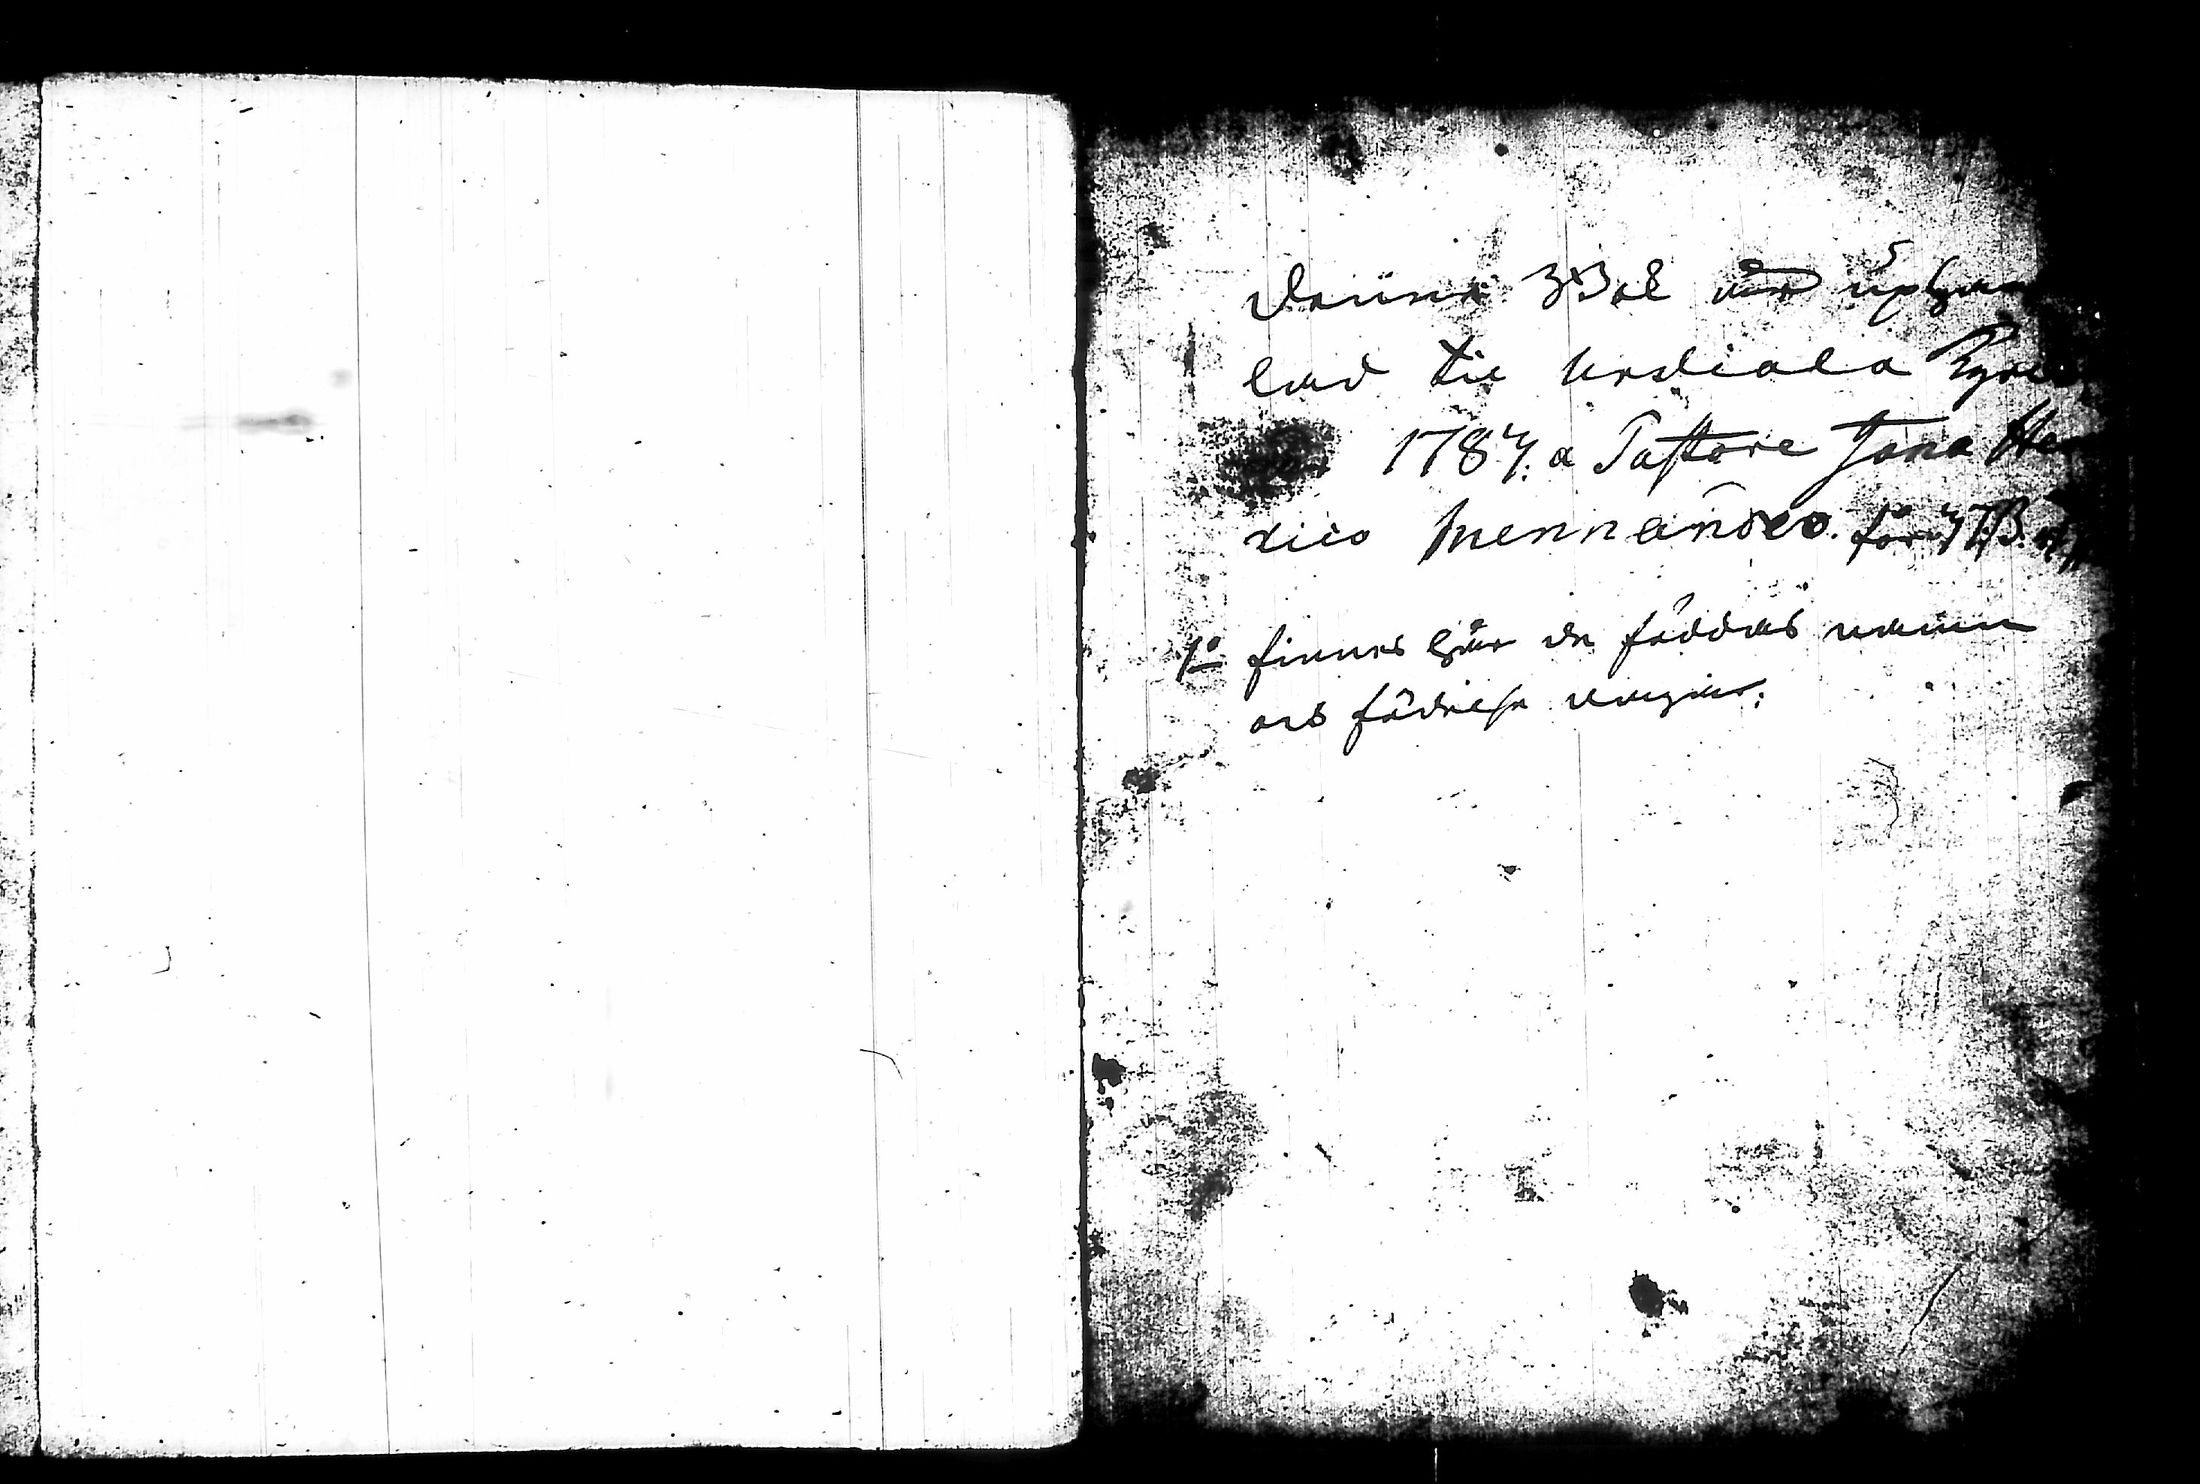 Denna Bok är uphan
lad til Urdiala Kyrc
1787. a Pastore Jona Hen
rico Mennander. för 7 T.B.
1o finnes här de föddas namn
ock födelse dagar;